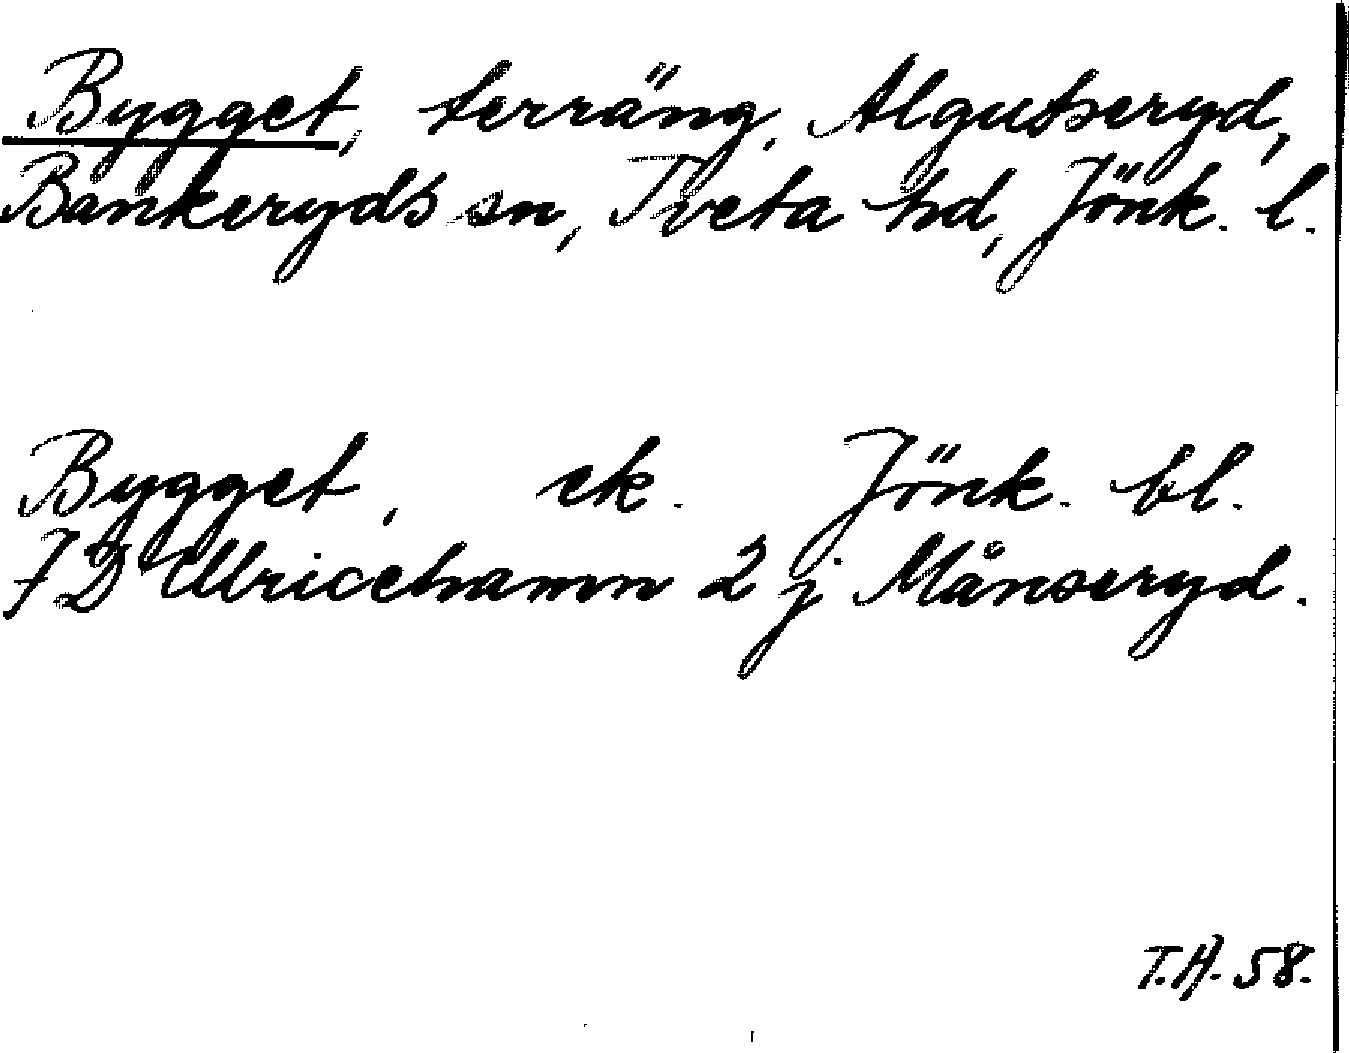 Bygget, terräng, Algutseryd,
Bankeryds sn, Tveta hd, Jönk. l.
Bygget, ek. Jönk. bl.
7D Ulricehamn 2 j Månseryd.
T.H. 58.